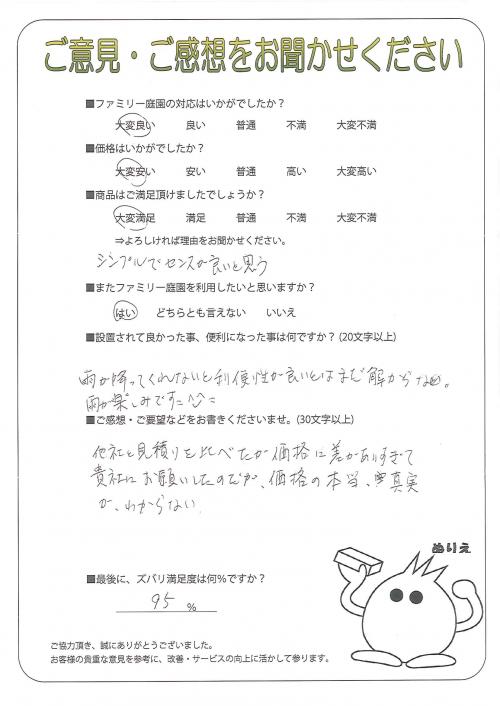 ご意見・ご感想をお聞かせください
■ファミリー庭園の対応はいかがでしたか？
大変良い 良い 普通 不満 大変不満
■価格はいかがでしたか？
大変安い 安い 普通 高い 大変高い
■商品はご満足頂けましたでしょうか？
大変満足 満足 普通 不満 大変不満
⇒よろしければ理由をお聞かせください。
シンプルでセンスが良いと思う
■またファミリー庭園を利用したいと思いますか？
はい どちらとも言えない いいえ
■設置されて良かった事、便利になった事は何ですか？(20文字以上)
雨が降ってくれないと利便性が良いとはまだ解からない。
雨が楽しみです
■ご感想・ご要望などをお書きくださいませ。(30文字以上)
他社と見積りを比べたが価格に差がありすぎて
貴社にお願いしたのだが、価格の本当、真実
が、わからない
ぬりえ
■最後に、ズバリ満足度は何％ですか？
95 %
ご協力頂き、誠にありがとうございました。
お客様の貴重な意見を参考に、改善・サービスの向上に活かして参ります。